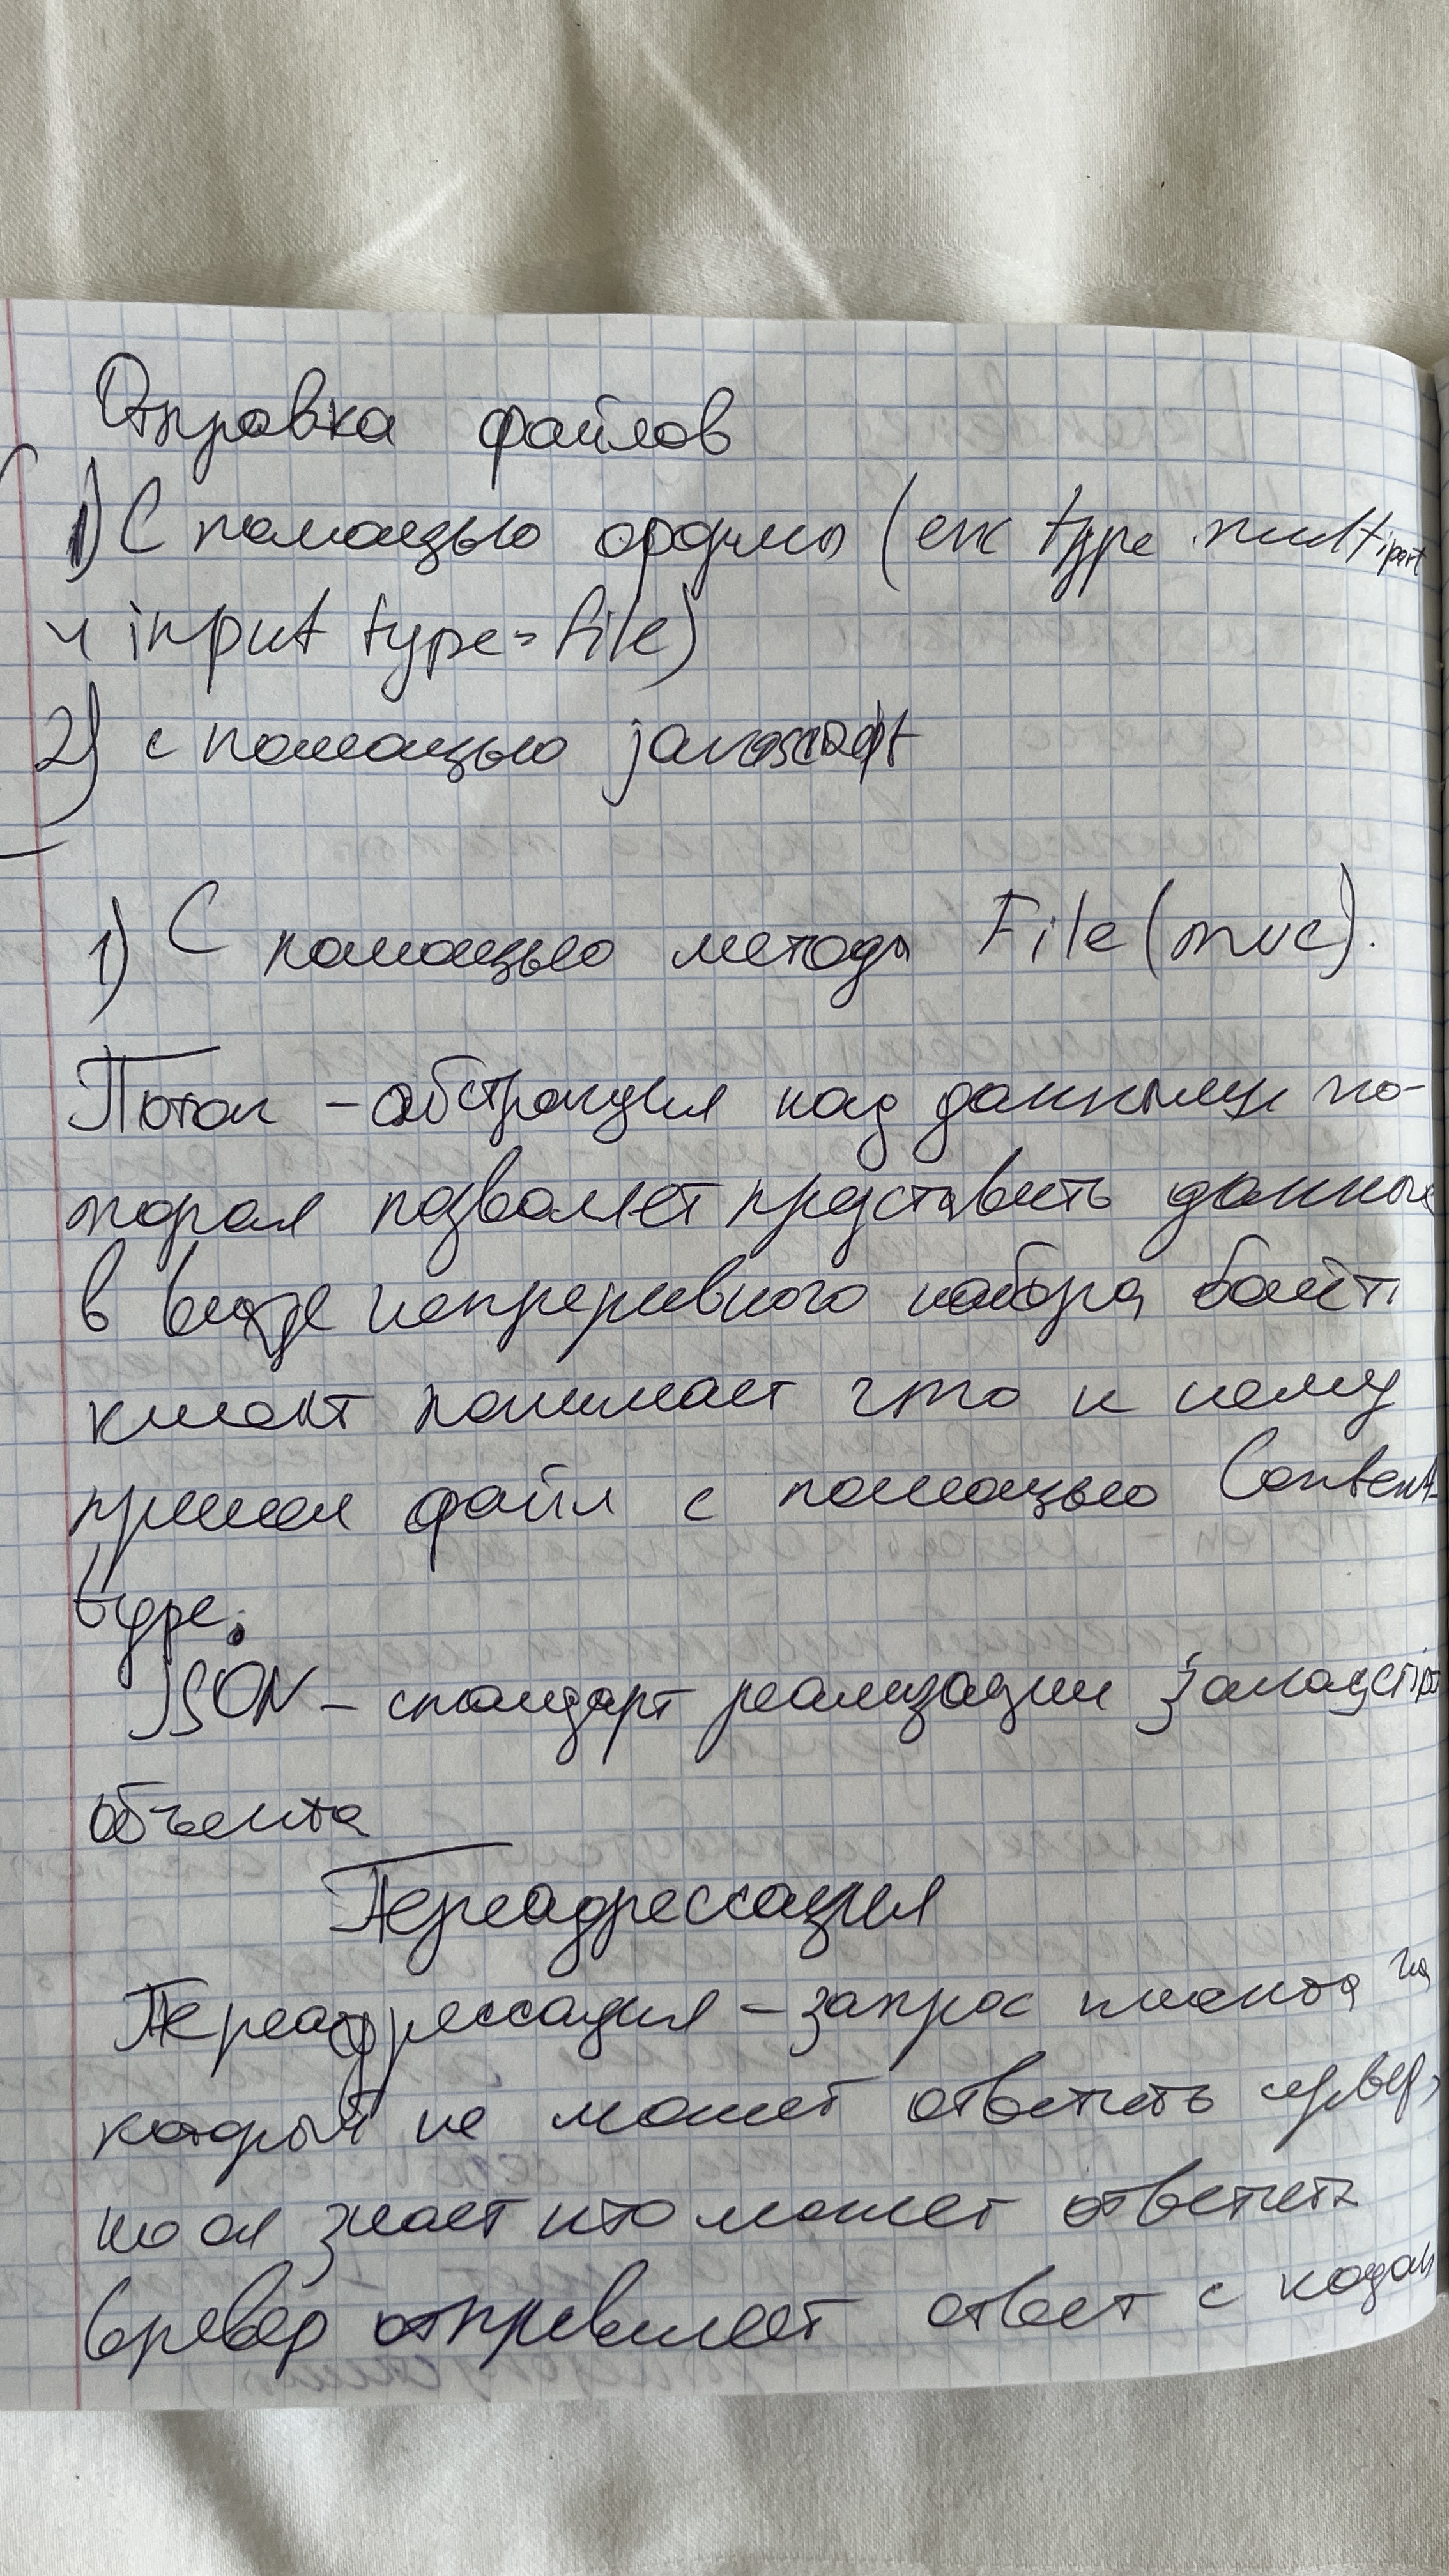 Отправка файлов
1) С помощью формы (enc type multipart
и input type=file)
2) с помощью javascript
1) С помощью метода File(mvc).
Поток - абстракция над данными ко-
торая позволяет представить данные
в виде непрерывного набора байт
клиент понимает что к нему
пришел файл с помощью Content-
type.
JSON - стандарт реализации
объекта
Переадрессация
Переадрессация - запрос клиента на
который не может ответить сервер,
но он знает кто может ответить
Сревер отправляет ответ с кодом